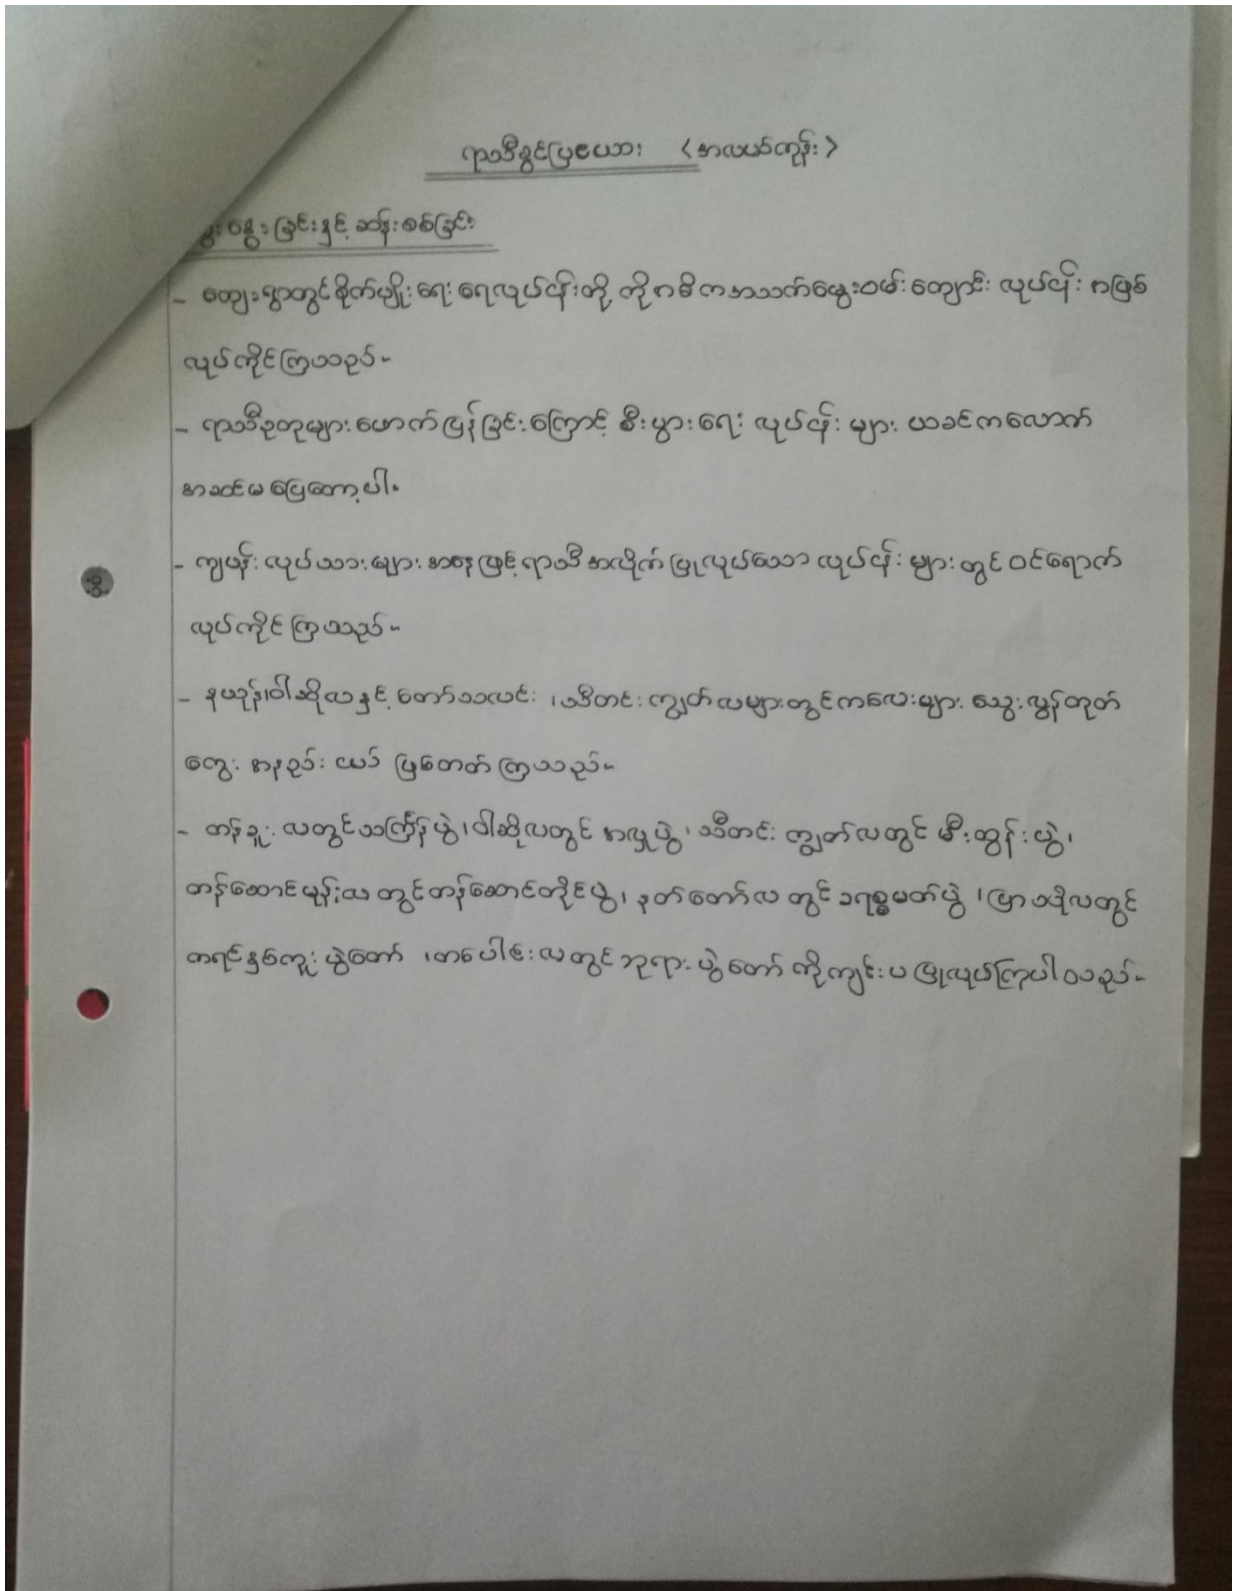 ရာသီခွင်ပြဇယား <အလယ်ကုန်း>
နွေးခြင်းနှင့် ဆန်းစစ်ခြင်း
- ကျေးရွာတွင်စိုက်ပျိုးရေး ရေလုပ်ငန်းတို့ကိုအဓိကအသက်မွေးဝမ်းကျောင်း လုပ်ငန်း အဖြစ်
လုပ်ကိုင်ကြသည်။
- ရာသီဥတုများဖောက်ပြန်ခြင်းကြောင့် စီးပွားရေး လုပ်ငန်း များ ယခင်ကလောက်
အဆင်မပြေတော့ပါ။
- ကျပန်းလုပ်သားများအနေဖြင့်ရာသီအလိုက်ပြုလုပ်သော လုပ်ငန်းများတွင် ဝင်ရောက်
လုပ်ကိုင်ကြသည်။
- နယုန်၊ဝါဆိုလနှင့် တော်သလင်း ၊သီတင်းကျွတ်လများတွင်ကလေးများ သွေးလွန်တုပ်
ကွေး အနည်း ငယ် ဖြစ်တတ်ကြသည်။
- တန်ခူးလတွင်သင်္ကြန်ပွဲ၊ဝါဆိုလတွင် အလှူပွဲ၊ သီတင်းကျွတ်လတွင် မီးထွန်းပွဲ၊
တန်ဆောင်မုန်းလတွင်တန်ဆောင်တိုင်ပွဲ၊ နတ်တော်လ တွင် ခရစ္စမတ်ပွဲ ၊ပြာသိုလတွင်
ကရင်နှစ်ကူးပွဲတော် ၊တပေါင်းလတွင်ဘုရားပွဲတော် ကိုကျင်းပပြုလုပ်ကြပါသည်။